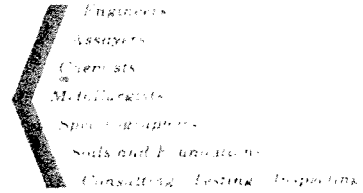 Engineers
Assayers
Chemists
Metallurgists
Spectrographers
Soils and Foundations
Consulting Testing Inspecting